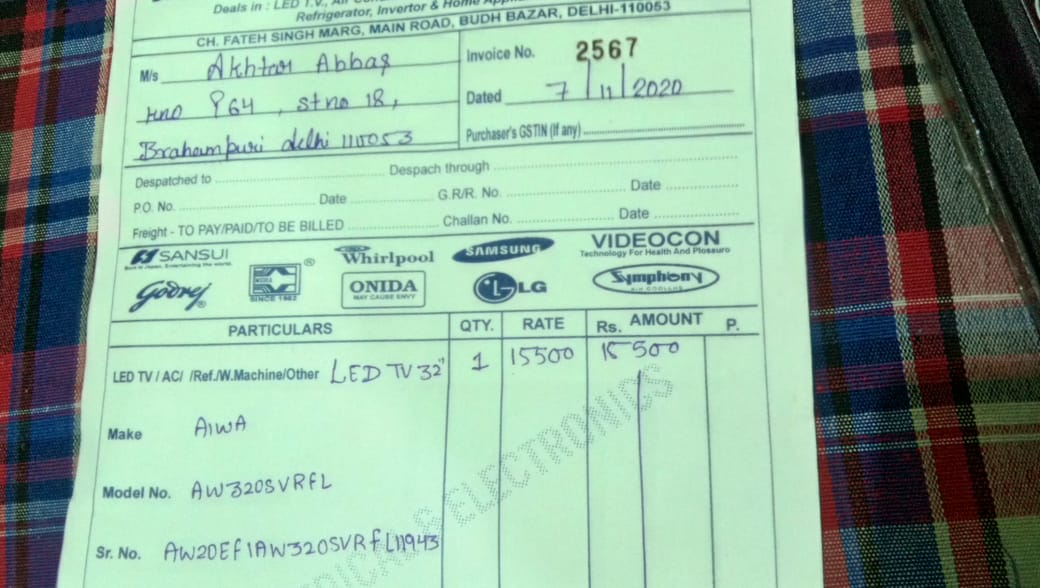 Deals in : LED T.V., Air
Refrigerator, Invertor & Home
CH. FATEH SINGH MARG, MAIN ROAD, BUDH BAZAR, DELHI-110053
M/s Akhtar Abbas
Invoice No. 2567
Hno 964, st no 18,
Dated 7/11/2020
Brahampuri delhi 110053
Purchaser's GSTIN (If any)
Despatched to Despach through
P.O. No. Date G.R/R. No. Date
Freight - TO PAY/PAID/TO BE BILLED Challan No. Date
SANSUI Whirlpool SAMSUNG VIDEOCON
Technology For Health And Plessure
Godrej SINCE 1982 ONIDA LG Symphony
MAY CAUSE ENVY AIR COOLERS
PARTICULARS QTY. RATE Rs. AMOUNT P.
LED TV / AC/ /Ref./W.Machine/Other LED TV 32" 1 15500 15500
Make AIWA
Model No. AW320SVRFL
Sr. No. AW20EF1AW320SVRFL11943
& ELECTRONICS